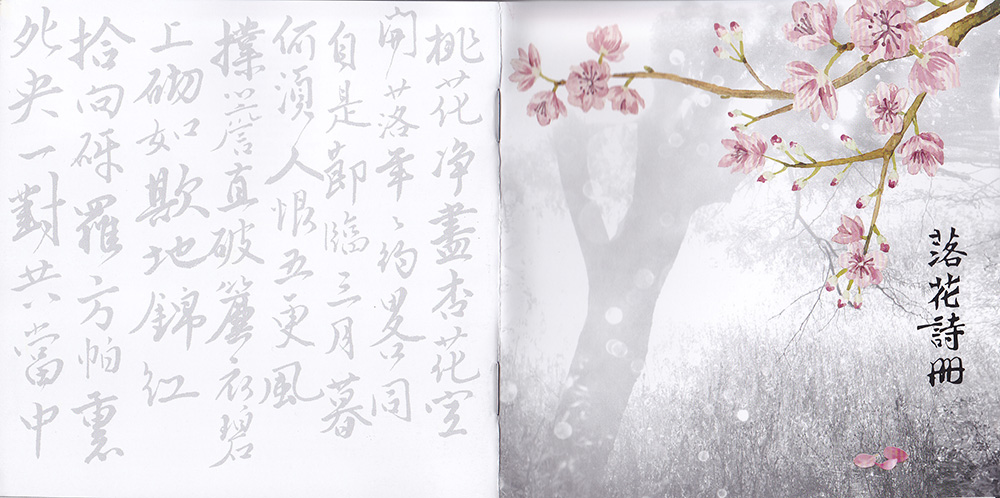 落花詩冊
桃花净盡杏花空
開落年〻約畧同
自是節臨三月暮
何須人恨五更風
撲簷直破簾衣碧
上砌如欺地錦紅
拾向砑羅方帕裹
夗央一對共當中